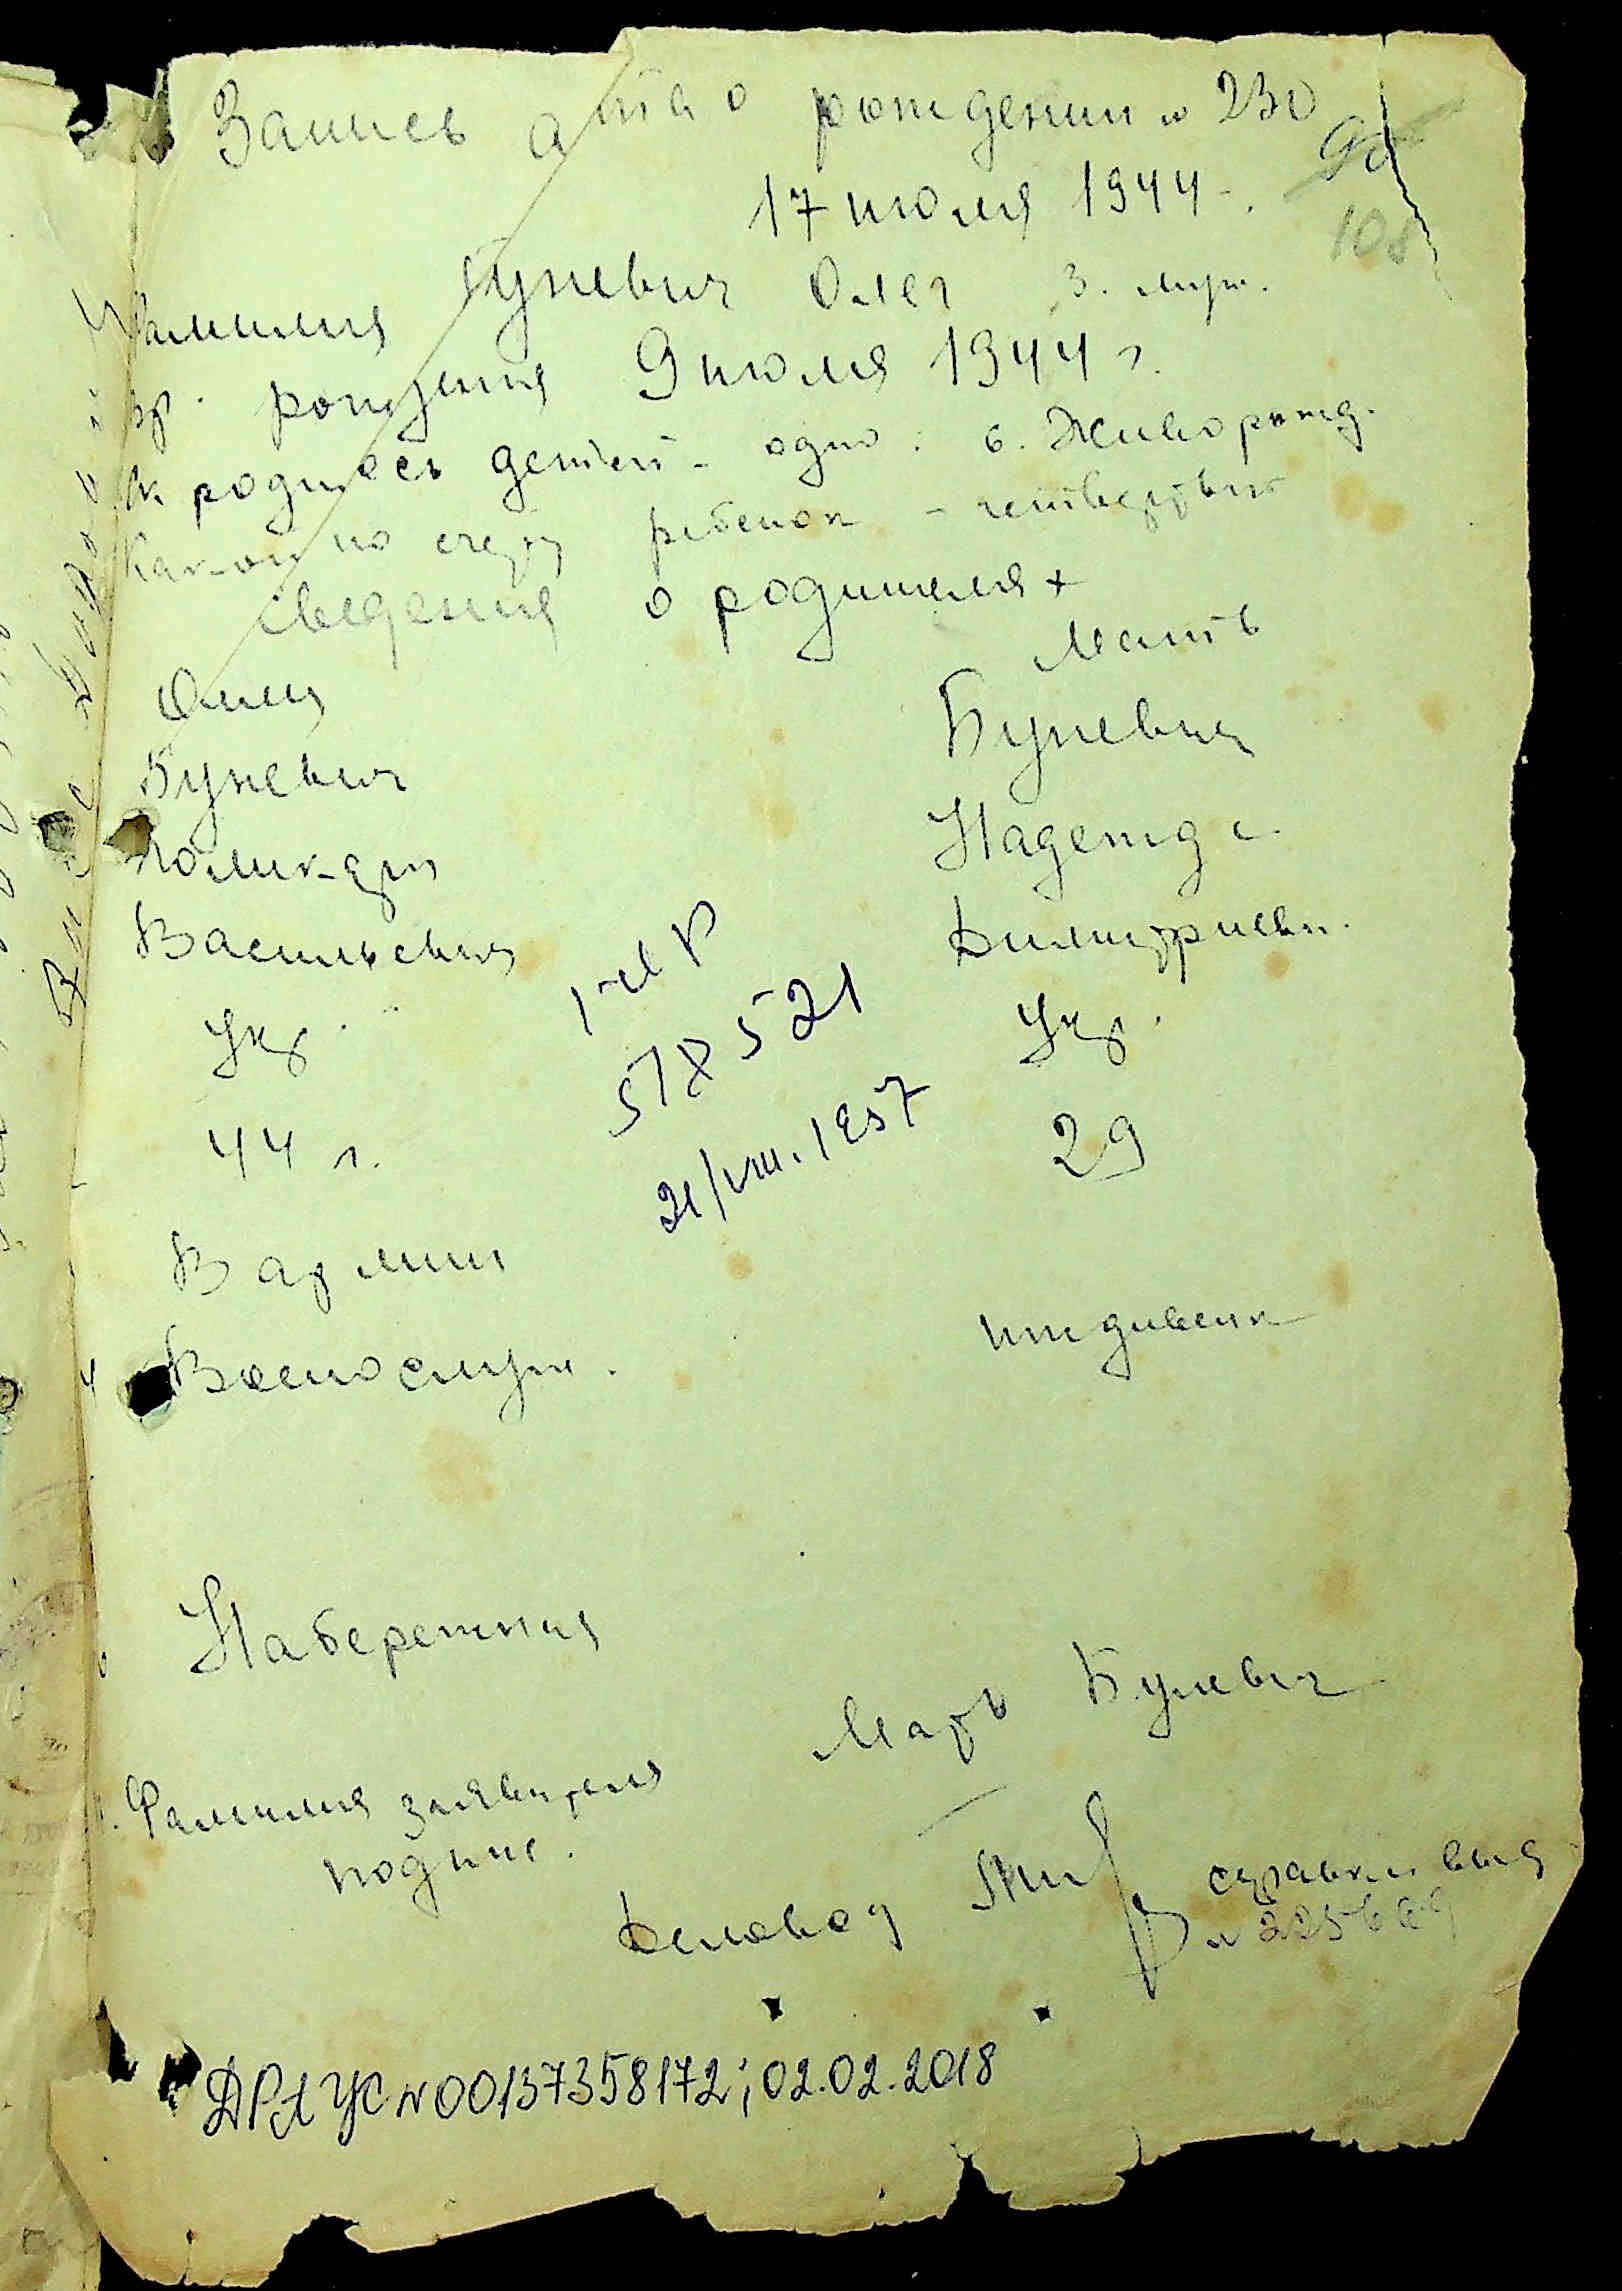 Запись акта о рождении № 230
90
17 июля 1944 г.
108
Фамилия Буневич Олег 3. муж.
вр. рождения 9 июля 1944 г.
родилось детей - одно: 6. Живорожд.
Какой по счету ребенок - четвертый
Сведения о родителях
Отец Мать
Буневич Буневич
Поликарп Надежда
Васильевич Димитриевн.
Укр. Укр.
44 г. 29
578521
21/VIII.1957
В армии
Военослуж. иждивен
Набережная
Мать Буневич
Фамилия заявителя
подпис.
Деловод справка выд
ДРАЦС № 00137358172; 02.02.2018